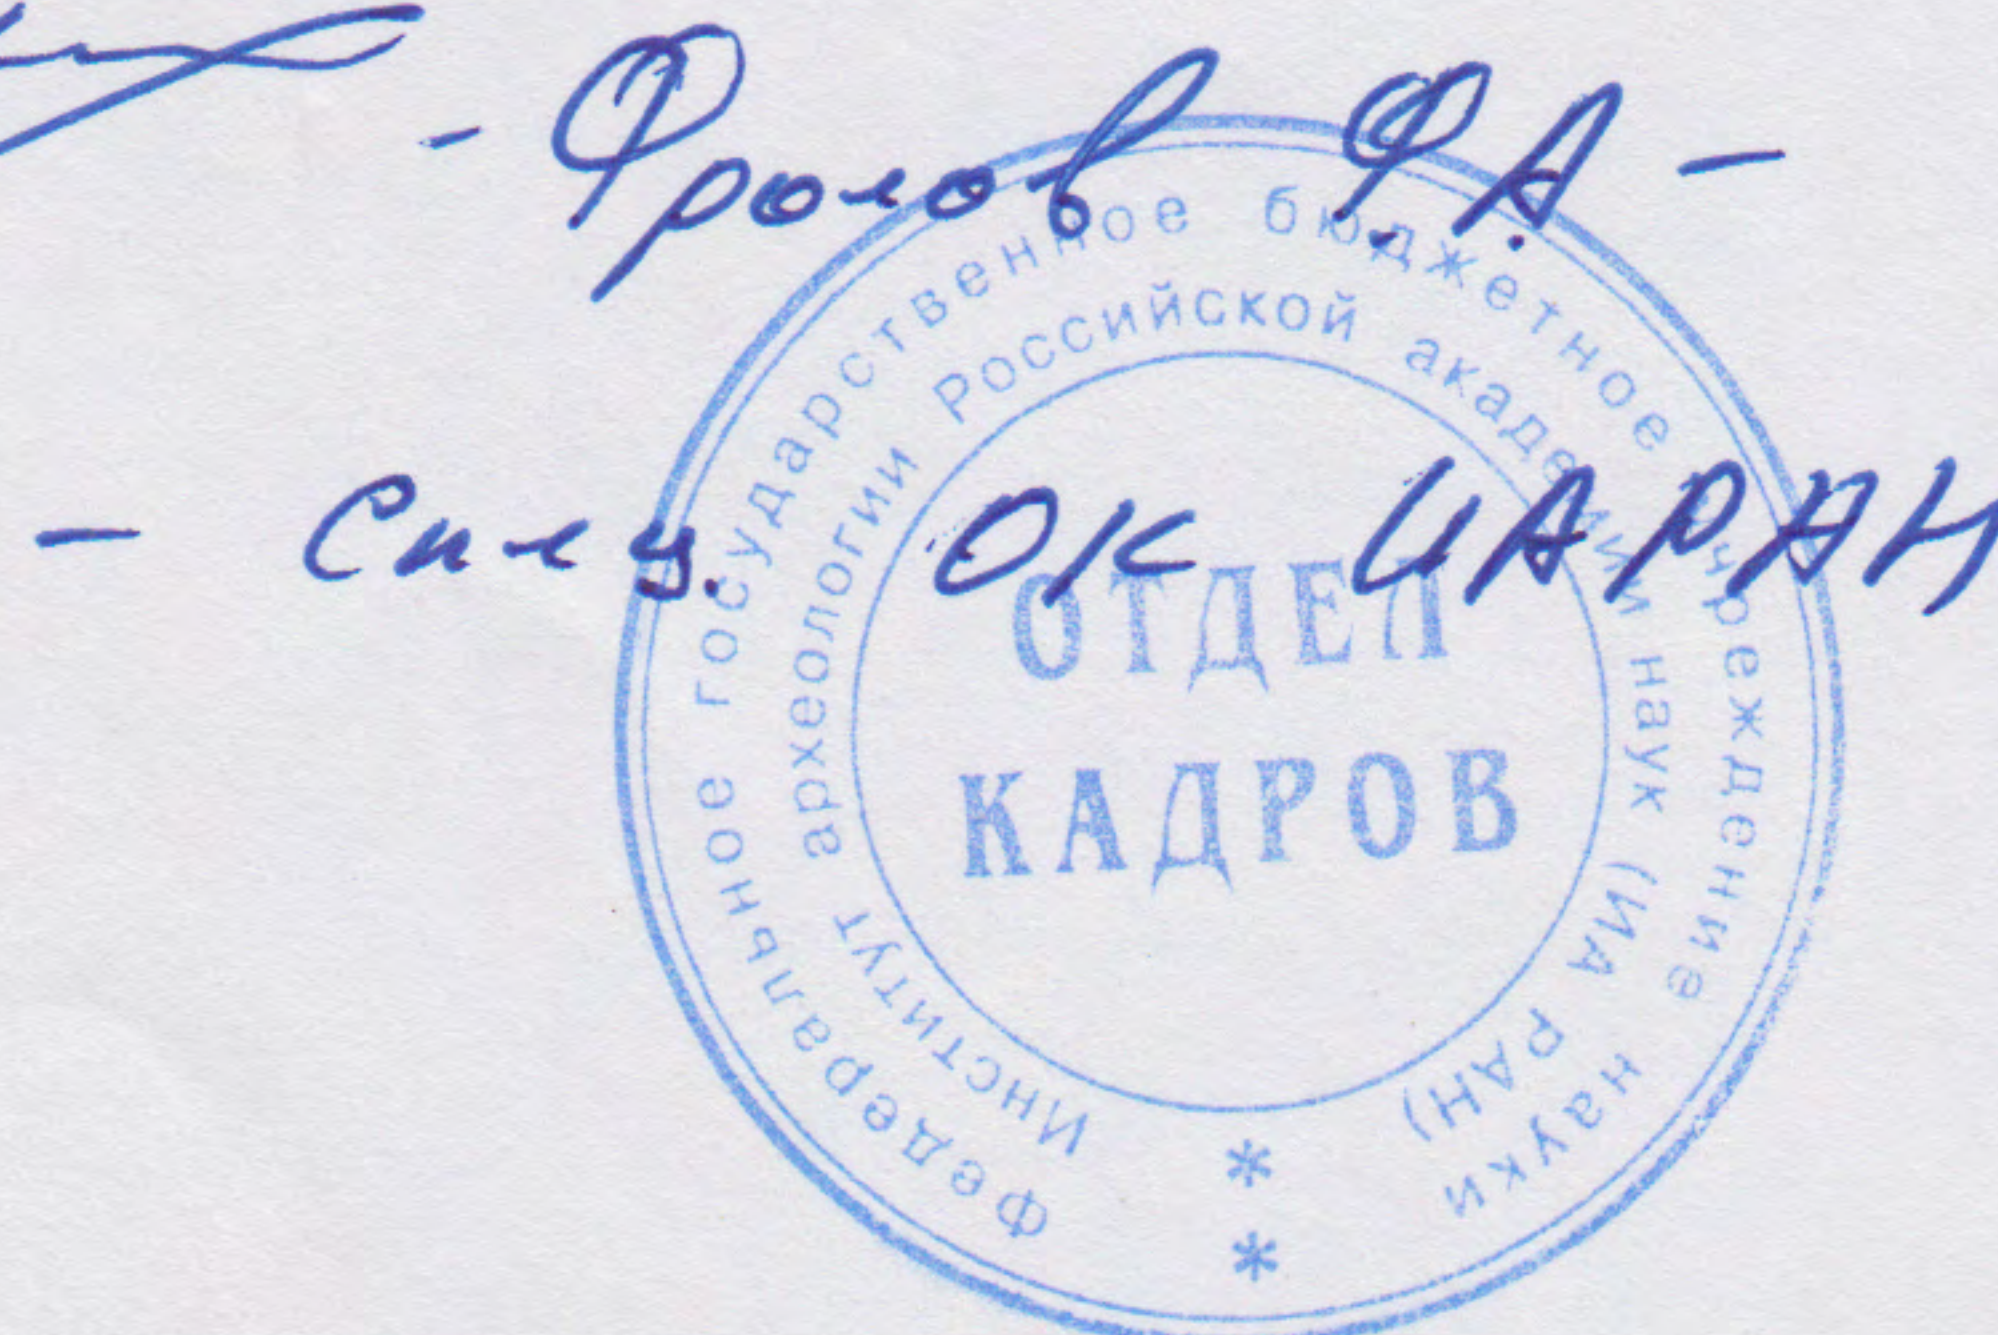 - Фролов Ф.А. -
- Спец. ОК ИА РАН
Федеральное государственное бюджетное учреждение науки
Институт археологии Российской академии наук (ИА РАН)
ОТДЕЛ
КАДРОВ
* *